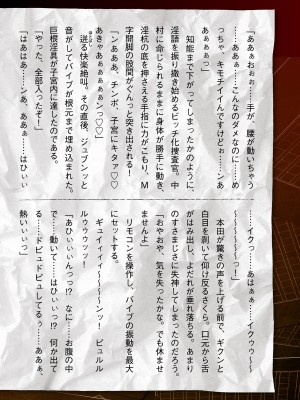 「ああぁおぉぉ……手が、腰が動いちゃう
……ああぁ……こんなのダメなのに……め
っちゃ、キモチイイんですけどぉ……ンあ
あぁぁぁっ」
　知能まで下がってしまったかのように、
淫語を振り撒き始めるビッチ捜査官。中
村に命じられるままに身体が勝手に動き、
淫杭の底を押さえる手指に力がこもり、M
字開脚の股間がぐんっと突き出される！
「ンあああ、チンポ、子宮にキタァ♡♡
あきゃあぁぁぁぁぁンっっ♡」
　迸る快楽絶叫。その直後、ジュブンッと
音がしてバイブが根元まで埋め込まれた。
巨根淫具が子宮内に達したのである。
「やった、全部入ったぞ！」
「はあはあ……ンあ、ああぁ……はひぃぃ
……イクっ……あはぁぁ……イクゥゥ〜〜
〜〜〜〜〜〜っ！」
　本田が驚きの声を上げる前で、ギクンと
白目を剥いて仰け反るさくら。口元から舌
がはみ出し、よだれが垂れ落ちる。あまり
のすさまじさに失神してしまったのだろう。
「おやおや、気を失ったかな。でも休ませ
ませんよ」
　リモコンを操作し、バイブの振動を最大
にセットする。
　ギュイィィィ〜〜〜〜ンッ！　ビュルル
ルゥゥゥッ！
「あひぃぃぃんっっ!?　なに……お腹の中
で……動いて……はひぃぃっ!?　何か出て
る……ドビュドビュしてるぅ……ああぁ、
熱いぃぃっ」